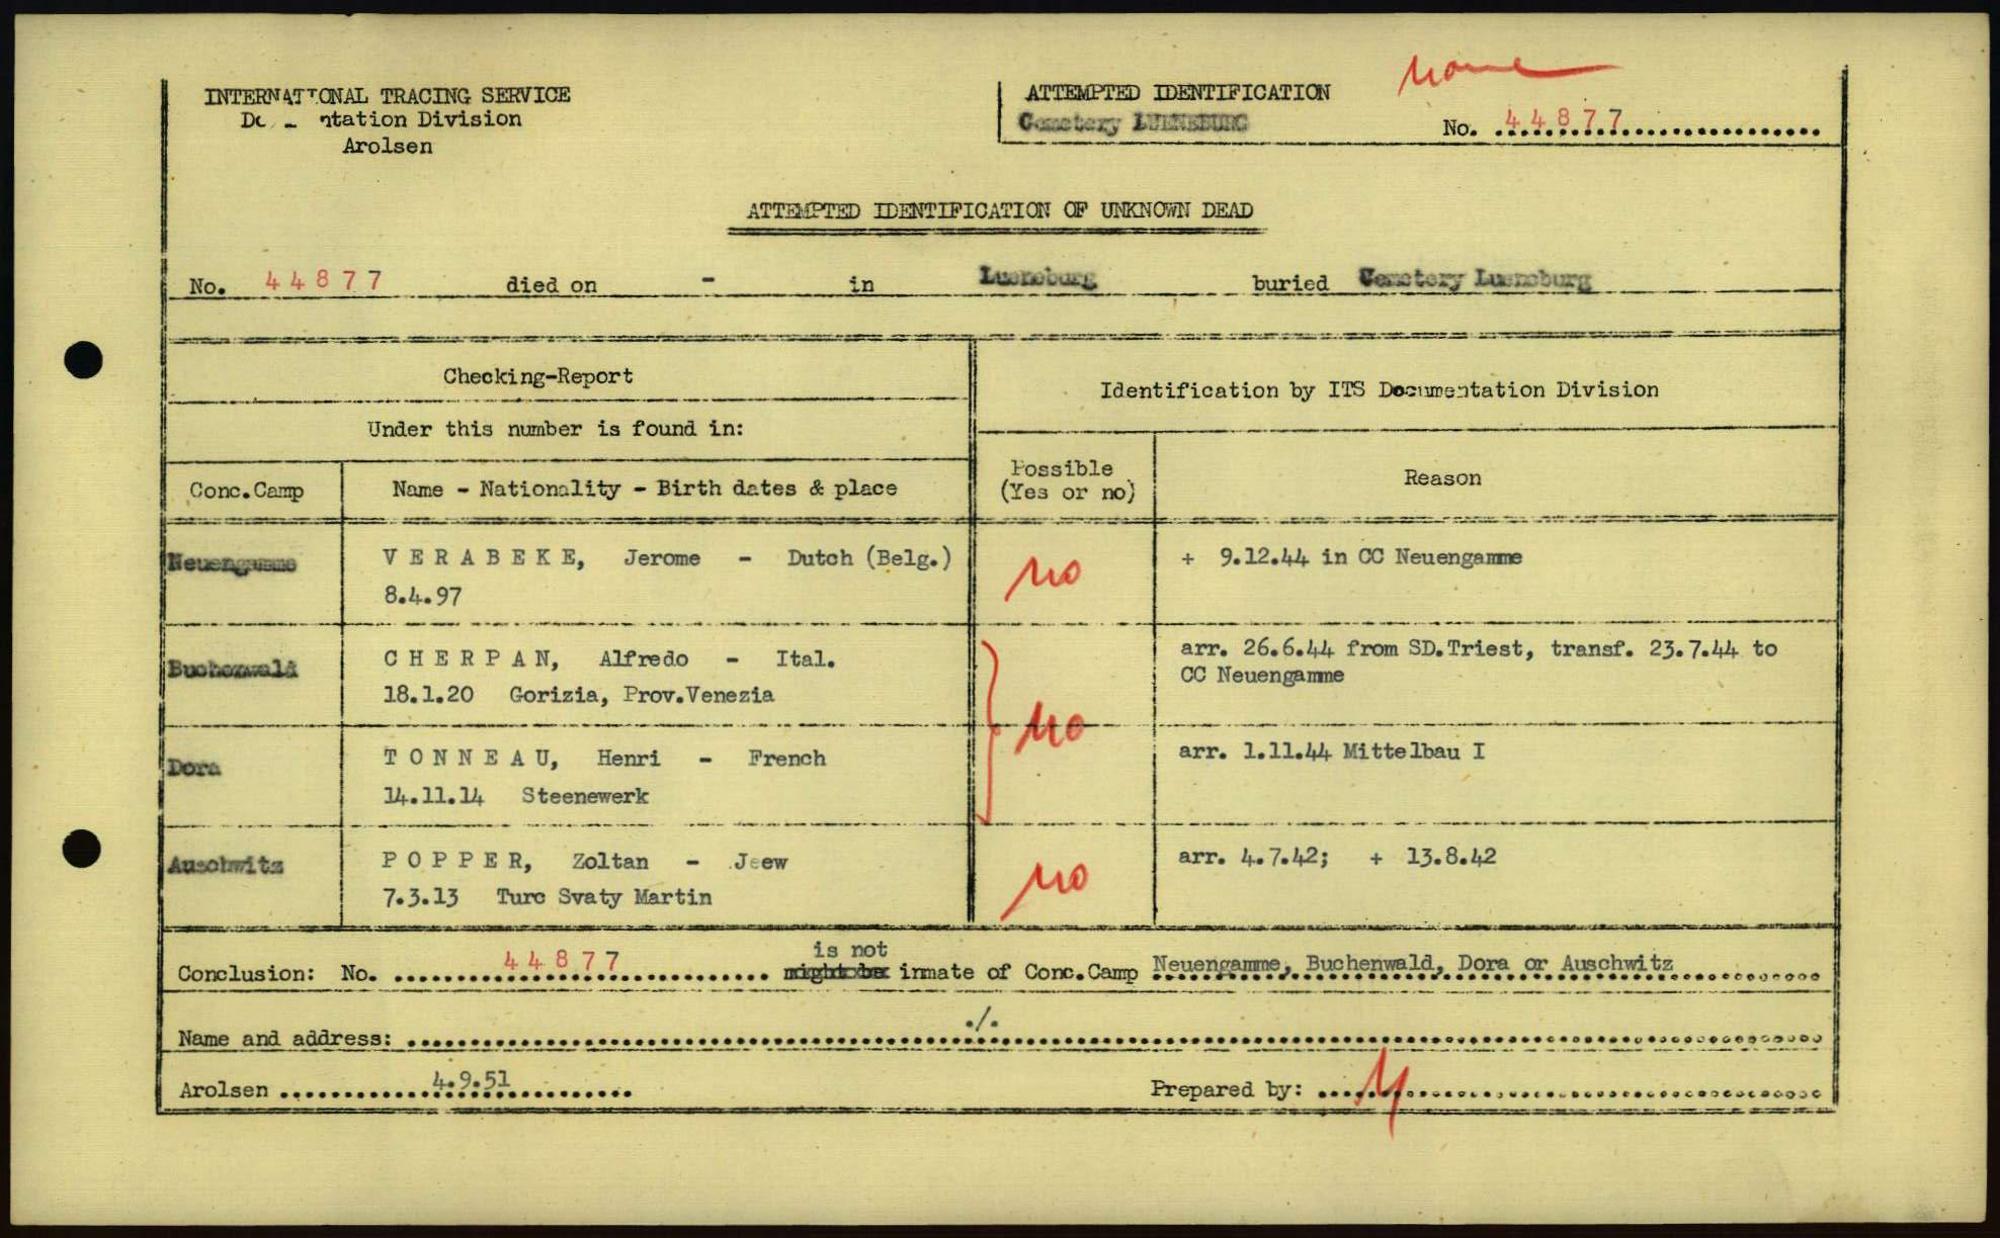 INTERNATIONAL TRACING SERVICE
ntation Division
Arolsen
ATTEMPTED IDENTIFICATION
none
Cemetery LUENEBURG
No. 44877
ATTEMPTED IDENTIFICATION OF UNKNOWN DEAD
No. 44877 died on - in Lueneburg buried Cemetery Lueneburg
Checking-Report
Identification by ITS Documentation Division
Under this number is found in:
Conc.Camp
Name - Nationality - Birth dates & place
Possible
(Yes or no)
Reason
Neuengamme
V E R A B E K E, Jerome - Dutch (Belg.)
8.4.97
no
+ 9.12.44 in CC Neuengamme
Buchenwald
C H E R P A N, Alfredo - Ital.
18.1.20 Gorizia, Prov.Venezia
no
arr. 26.6.44 from SD.Triest, transf. 23.7.44 to
CC Neuengamme
Dora
T O N N E A U, Henri - French
14.11.14 Steenewerk
arr. 1.11.44 Mittelbau I
Auschwitz
P O P P E R, Zoltan - Jeew
7.3.13 Turc Svaty Martin
no
arr. 4.7.42; + 13.8.42
is not
Conclusion: No. 44877 might be inmate of Conc.Camp Neuengamme, Buchenwald, Dora or Auschwitz
Name and address: ./.
Arolsen 4.9.51
Prepared by: